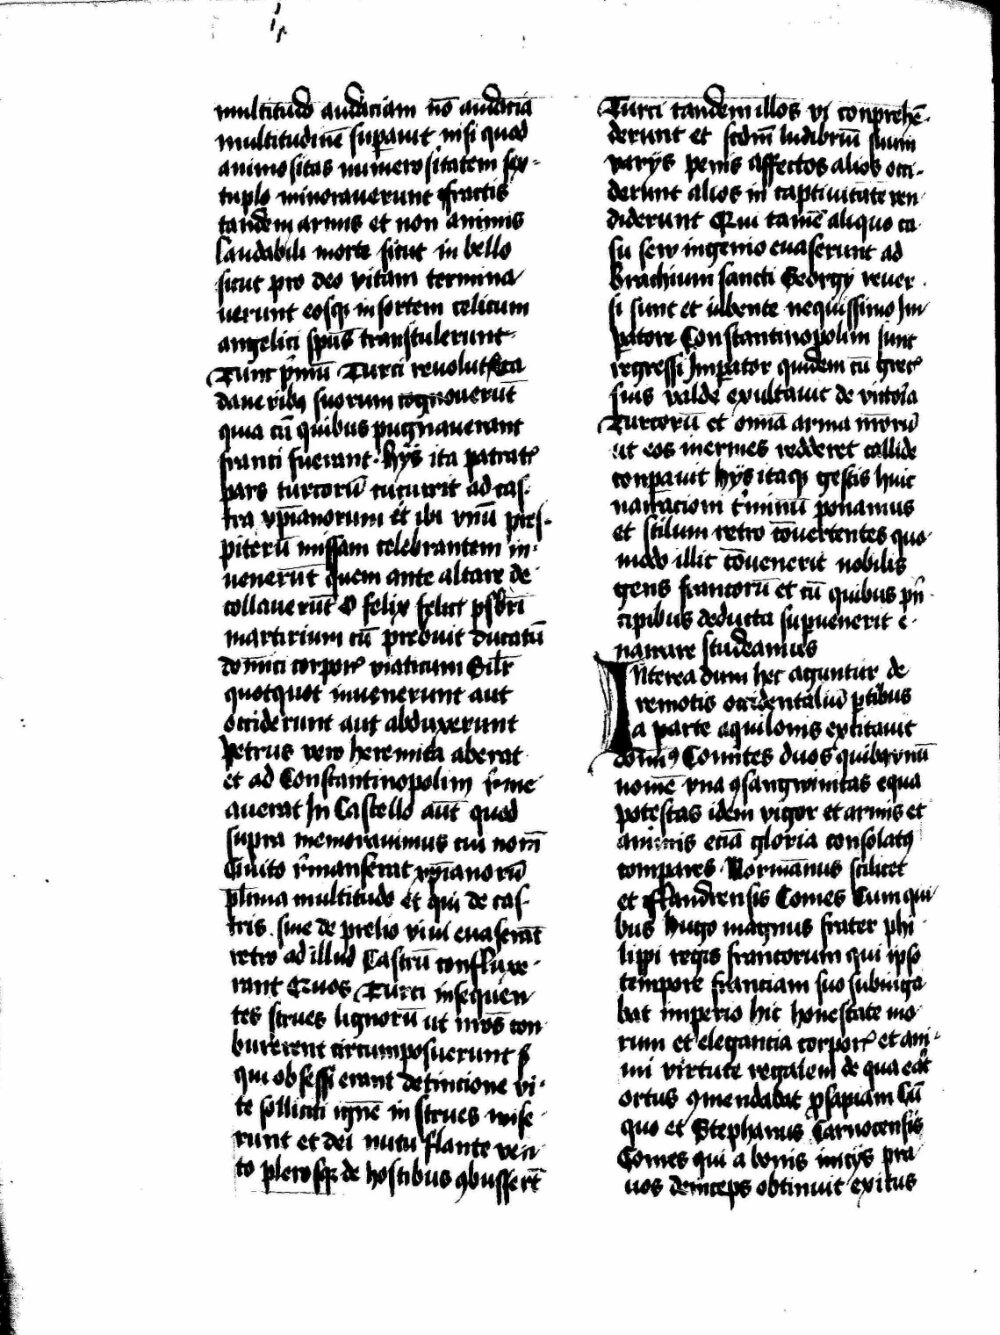 multitudo audaciam nō audacia
multitudinē supauit nisi quod
animositas numerositatem sex-
tuplo minorauerunt ffractis
tandem armis et non animis
laudabili morte sicut in bello
sicut pro deo vitam termina
uerunt eosq; in sortem celicum
angelici spūs transtulerunt·
Tunc pⁱmū Turci reuolut
daueribꝫ suorum cognouerūt
quia cū quibus pugnauerant
franci fuerant· hijs ita patratꝭ
pars turcorū cucurrit ad cas-
tra xpianorum et ibi vnū pres-
piterū missam celebrantem in-
uenerūt quem ante altare de
collauerūt O felix felicis psbri
martirium cū prebuit ducatū
domīci corporꝭ viaticum Silr
quotquot inuenerunt aut
occiderunt aut abduxerunt
Petrus vero heremita aberat
et ad Constantinopolim rme
auerat In Castello aūt quod
supra memorauimus cui nomē
Ciuito rmanserat xpianorū
plima multitudo et qui de cas-
tris siue de prelio viui euaserāt
retro ad illud Castrū confluxe-
rant Quos Turci insequen
tes strues lignorū ut īnos con
burerent circumposuerunt s
qui obsessi erant detincione vi-
te solliciti ignē in strues mise
runt et dei nutu flante ven
to plerosq; de hostibus ꝯbusserūt
Turci tandem illos vi conprehē-
derunt et scdm ludibriū suum
varijs penis affectos alios occi-
derunt alios in captiuitatē ven
diderunt Qui tamē aliquo ca
su seu ingenio euaserunt ad
Brachium sancti Georgij reuer
si sunt et iubente nequissimo Im
patore Constantinopolim sunt
regressi Imperator quidem cū grecꝭ
suis valde exultauit de victoīa
Turcorū et omīa arma nrorū
ut eos inermes redderet callide
conpauit hijs itaq; gestis huic
narrāciom tminū ponamus
et stilum retro cōuertentes quo
modo illic cōuenerit nobilis
gens francorū et cū quibus pⁱn
cipibus deducta supuenerit e-
narrare studeamus
Interea dum hec aguntur de
remotis occidentaliū ptibus
a parte aquilonis excitauit
domⁱꝰ Comites duos quibꝫ vnū
nomē vna ꝯsangwinitas equa
potestas idem vigor et armis et
animis eciā gloria consolatꝰ
compares Normannus scilicet
et fflandrensis Comes Cum qui
bus Hugo magnus frater phi
lippi regis francorum qui ipso
tempore franciam suo subiuga
bat imperio hic honestate mo
rum et elegancia corporꝭ et ani-
mi virtute regalem de qua erat
ortus ꝯmendabat psapiam Cū
quo et Stephanus Carnotensis
Comes qui a bonis inicijs pra
uos deinceps obtinuit exitus